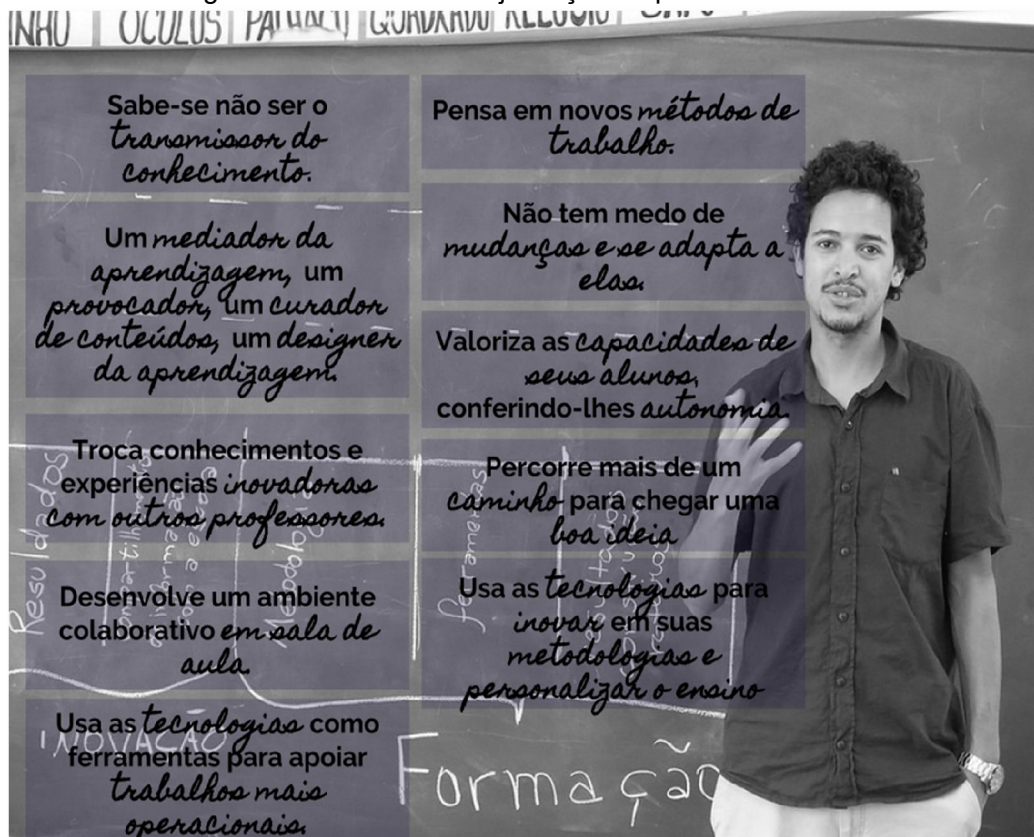 INHO | OCULOS | PALHAÇO | QUADRADO
Sabe-se não ser o
transmissor do
conhecimento.
Um mediador da
aprendizagem, um
provocador, um curador
de conteúdos, um designer
da aprendizagem.
Troca conhecimentos e
experiências inovadoras
com outros professores.
Desenvolve um ambiente
colaborativo em sala de
aula.
Usa as tecnologias como
ferramentas para apoiar
trabalhos mais
operacionais.
Pensa em novos métodos de
trabalho.
Não tem medo de
mudanças e se adapta a
elas.
Valoriza as capacidades de
seus alunos,
conferindo-lhes autonomia.
Percorre mais de um
caminho para chegar uma
boa ideia
Usa as tecnologias para
inovar em suas
metodologias e
personalizar o ensino
Resuldados
INOVAÇÃO
Formação